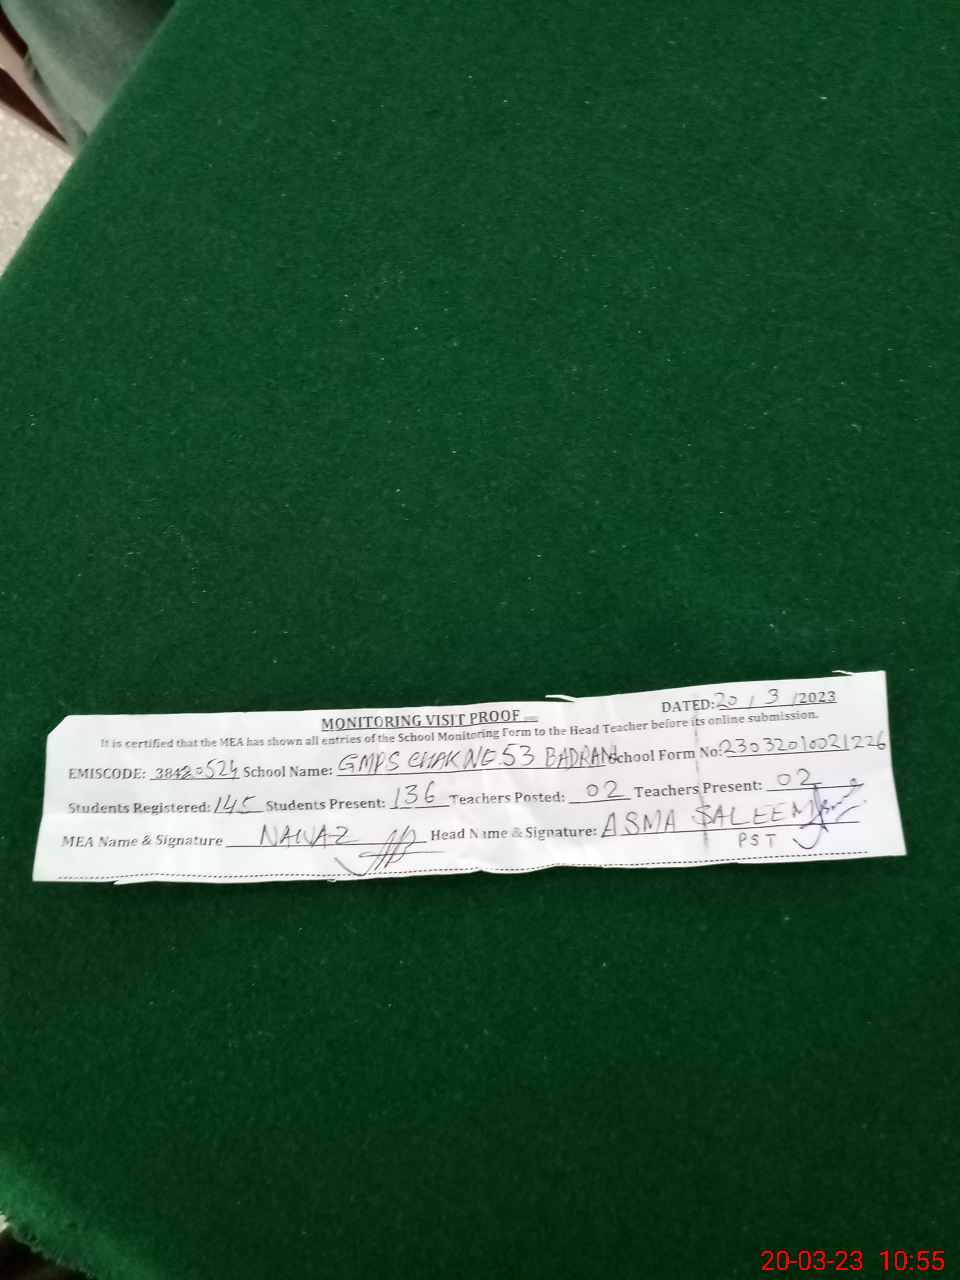 MONITORING VISIT PROOF
DATED: 20 / 3 /2023
It is certified that the MEA has shown all entries of the School Monitoring Form to the Head Teacher before its online submission.
EMISCODE: 38420524 School Name: GMPS CHAK NO.53 BADRAN School Form No: 23032010021226
Students Registered: 145 Students Present: 136 Teachers Posted: 02 Teachers Present: 02
MEA Name & Signature NAWAZ Head Name & Signature: ASMA SALEEM
PST
20-03-23 10:55